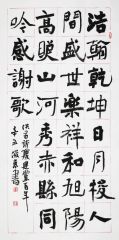 浩翰乾坤日月梭人
間盛世樂祥和旭陽
高暎山河秀赤縣同
吟感謝歌
建黨百年